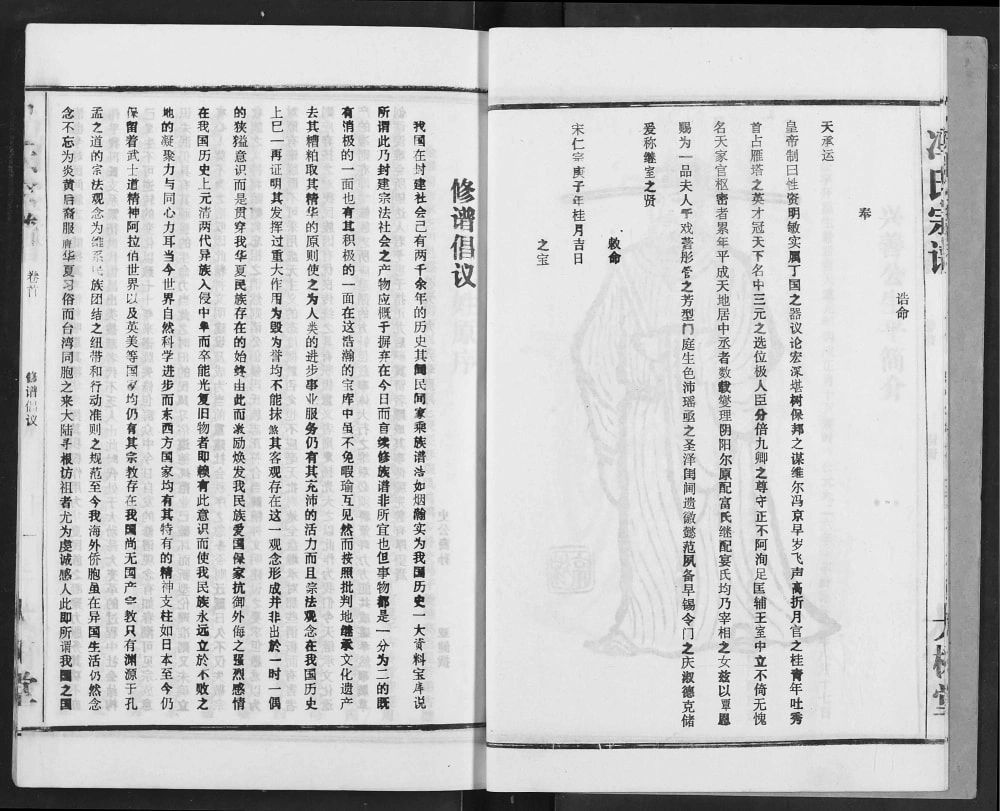 冯氏宗谱
大树堂
诰命
奉
天承运
皇帝制曰性资明敏实属丁国之器议论宏深堪树保邦之谋维尔冯京早岁飞声高折月宫之桂青年吐秀
首占雁塔之英才冠天下名中三元之选位极人臣分倍九卿之尊守正不阿洵足国辅王室中立不倚无愧
名天家官枢密者累年平成天地居中丞者数载燮理阴阳尔原配富氏继配宴氏均乃宰相之女兹以覃恩
赐为一品夫人于戏蓍彤管之芳型门庭生色沛瑶亟之圣泽闺阃遗徽懿范夙备早锡令门之庆淑德克储
爰称继室之贤
敕命
宋仁宗庚子年桂月吉日
之宝
修谱倡议
我国在封建社会已有两千余年的历史其闻民间家乘族谱浩如烟瀚实为我国历史一大资料宝库说
所谓此乃封建宗法社会之产物应概予摒弃在今日而言续修族谱非所宜也但事物都是一分为二的既
有消极的一面也有其积极的一面在这浩瀚的宝库中虽不免暇瑜互见然而按照批判地继承文化遗产
去其糟粕取其精华的原则使之为人类的进步事业服务仍有其充沛的活力而且宗法观念在我国历史
上巳一再证明其发挥过重大作用为毁为誉均不能抹煞其客观存在这一观念形成并非出於一时一偶
的狭猛意识而是贯穿我华夏民族存在的始终由此而激励焕发我民族爱国保家抗御外侮之强烈感情
在我国历史上元清两代异族入侵中牟而卒能光复旧物者即赖有此意识而使我民族永远立於不败之
地的凝聚力与同心力耳当今世界自然科学进步而东西方国家均有其特有的精神支柱如日本至今仍
保留着武士道精神阿拉伯世界以及英美等国均仍有其宗教存在我国尚无国产宗教只有渊源于孔
孟之道的宗法观念为维系民族团结之纽带和行动准则之规范至今我海外侨胞虽在异国生活仍然念
念不忘为炎黄后裔服膺华夏习俗而台湾同胞之来大陆寻根访祖者尤为虔诚感人此即所谓我国之国
卷首
修谱倡议
一
堂